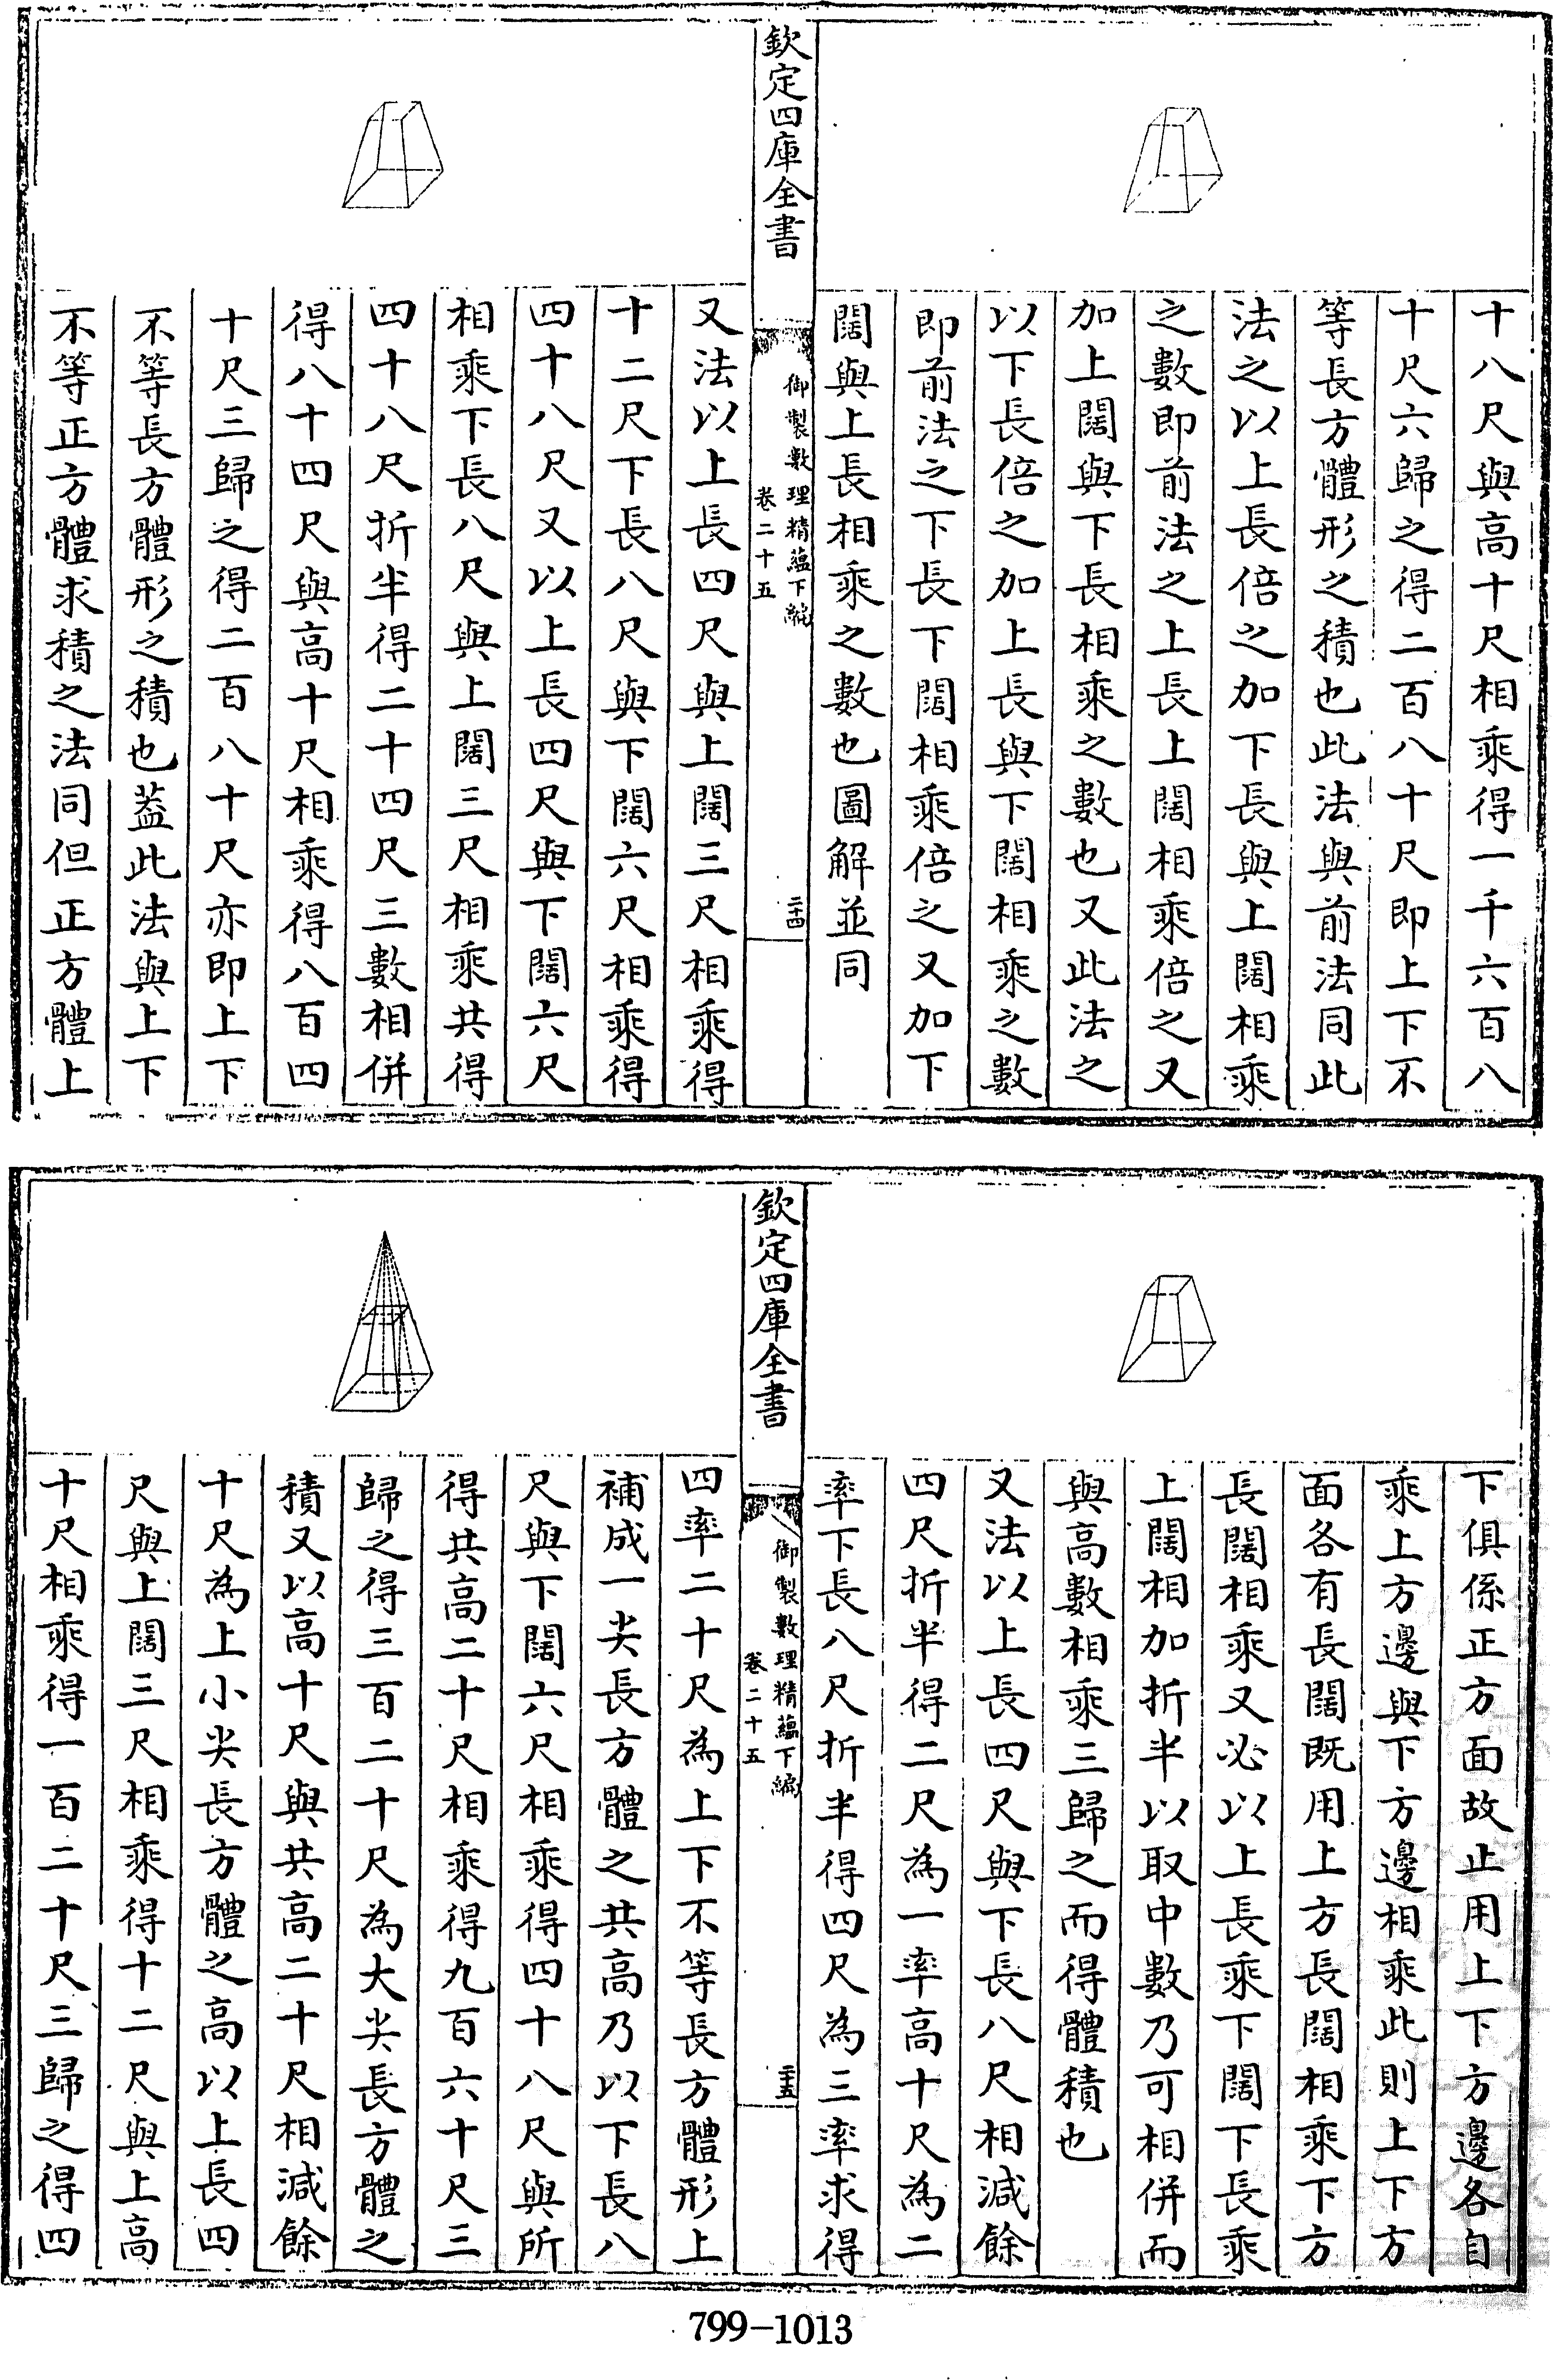 十八尺與高十尺相乘得一千六百八
十尺六歸之得二百八十尺即上下不
等長方體形之積也此法與前法同此
法之以上長倍之加下長與上闊相乘
之數即前法之上長上闊相乘倍之又
加上闊與下長相乘之數也又此法之
以下長倍之加上長與下闊相乘之數
即前法之下長下闊相乘倍之又加下
闊與上長相乘之數也圖解並同
欽定四庫全書
御製數理精蘊下編
卷二十五
二十四
又法以上長四尺與上闊三尺相乘得
十二尺下長八尺與下闊六尺相乘得
四十八尺又以上長四尺與下闊六尺
相乘下長八尺與上闊三尺相乘共得
四十八尺折半得二十四尺三數相併
得八十四尺與高十尺相乘得八百四
十尺三歸之得二百八十尺亦即上下
不等長方體形之積也葢此法與上下
不等正方體求積之法同但正方體上
下俱係正方面故止用上下方邊各自
乘上方邊與下方邊相乘此則上下方
面各有長闊既用上方長闊相乘下方
長闊相乘又必以上長乘下闊下長乘
上闊相加折半以取中數乃可相併而
與高數相乘三歸之而得體積也
又法以上長四尺與下長八尺相減餘
四尺折半得二尺為一率高十尺為二
率下長八尺折半得四尺為三率求得
欽定四庫全書
御製數理精蘊下編
卷二十五
二十五
四率二十尺為上下不等長方體形上
補成一尖長方體之共高乃以下長八
尺與下闊六尺相乘得四十八尺與所
得共高二十尺相乘得九百六十尺三
歸之得三百二十尺為大尖長方體之
積又以高十尺與共高二十尺相減餘
十尺為上小尖長方體之高以上長四
尺與上闊三尺相乘得十二尺與上高
十尺相乘得一百二十尺三歸之得四
799-1013